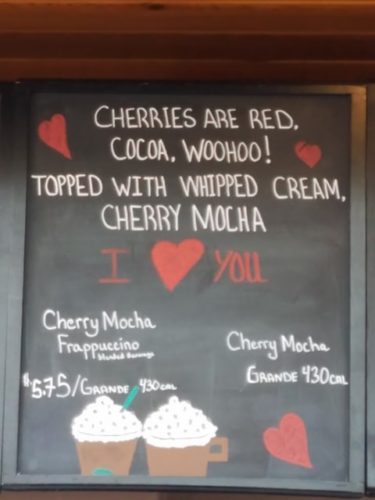 CHERRIES ARE RED,
COCOA, WOOHOO!
TOPPED WITH WHIPPED CREAM,
CHERRY MOCHA
I YOU
Cherry Mocha
Frappuccino
blended beverage
$5.75/GRANDE 430CAL
Cherry Mocha
GRANDE 430CAL